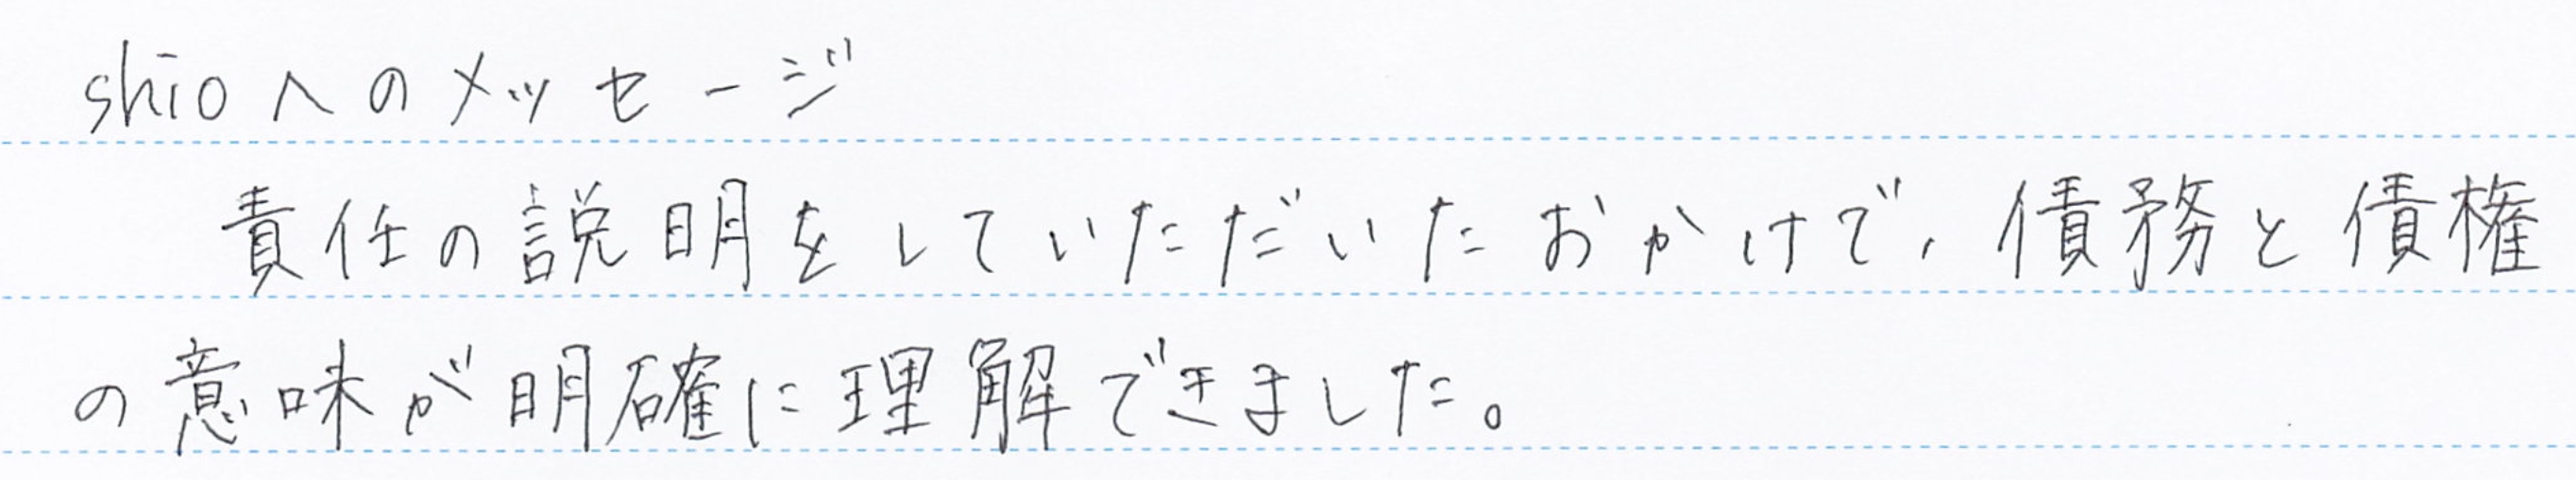 shioへのメッセージ
責任の説明をしていただいたおかけで、債務と債権
の意味が明確に理解できました。